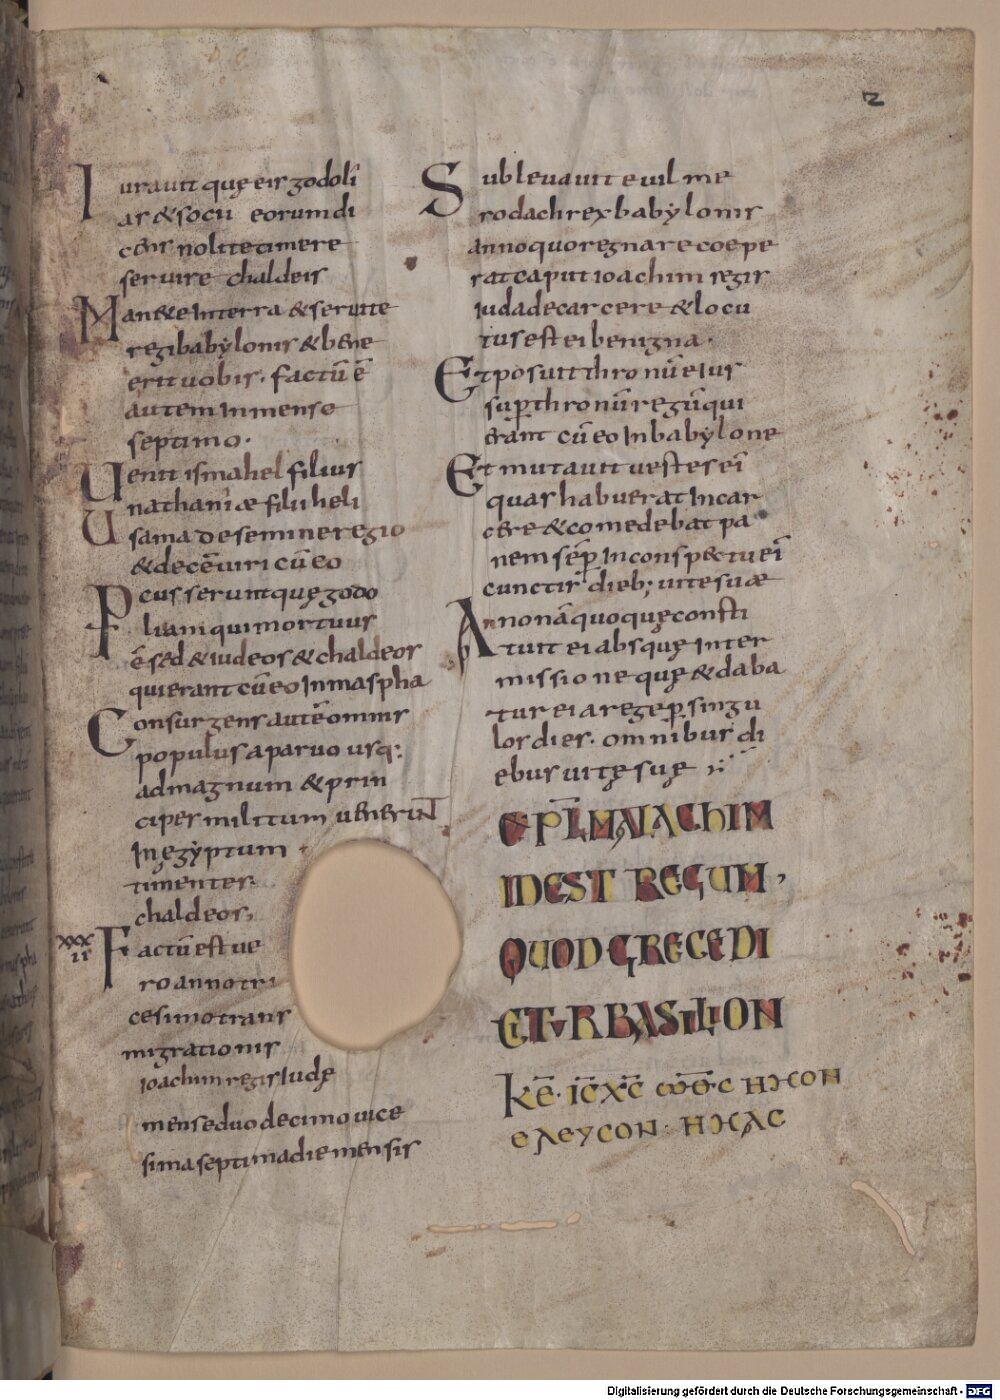 2
Iurauit quę eis godoli
as & socii eorum di
cens nolite timere
seruire chaldeis
Man&e In terra & seruite
regi babylonis & bene
erit uobis · factū ē
autem In mense
septimo ·
Uenit ismahel filius
nathaniæ filii heli
Usama de semine regio
& decē uiri cū eo
Pcusserunt quę godo
liam qui mortuus
ē sed & iudeos & chaldeos
qui erant cū eo In maspha
Consurgens autē omnis
populus a paruo usq;
ad magnum & prin
cipes militum uenerūt
In ęgyptum
timentes
chaldeos,
xxx
ii
Factū est ue
ro anno tri
cesimo trans
migrationis
ioachim regis Iudę
mense duodecimo uice
sima septima die mensis
Subleuauit euil me
rodach rex babylonis
anno quo regnare coepe
rat caput ioachim regis
iuda de carcere & locu
tus est ei benigna ·
Et posuit thronū eius
sup thronū regū qui
erant cū eo In babylone
Et mutauit uestes ei
quas habuerat In car
cere & comedebat pa
nem sēp In conspectu ei
cunctis dieb; uite suæ
Annonā quoquę consti
tuit ei absquę Inter
missione quę & daba
tur ei a rege p singu
los dies · omnibus di
ebus uitę suę
EXPL MALACHIM
IDEST REGUM,
QUOD GRECE DI
CITUR BASILION
Κ̅Ε̅ · Ι̅C̅ Χ̅C̅ ω̅Θ̅C ΗΧΟΝ
ΕΛΕΥCΟΝ · ΗΧΑC
Digitalisierung gefördert durch die Deutsche Forschungsgemeinschaft - DFG